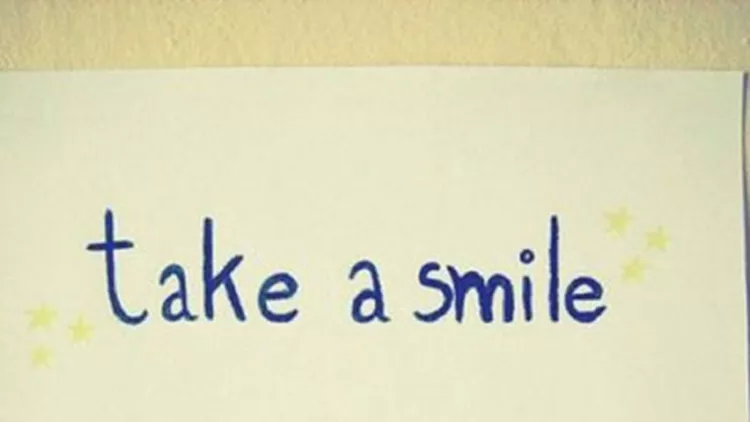 take a smile